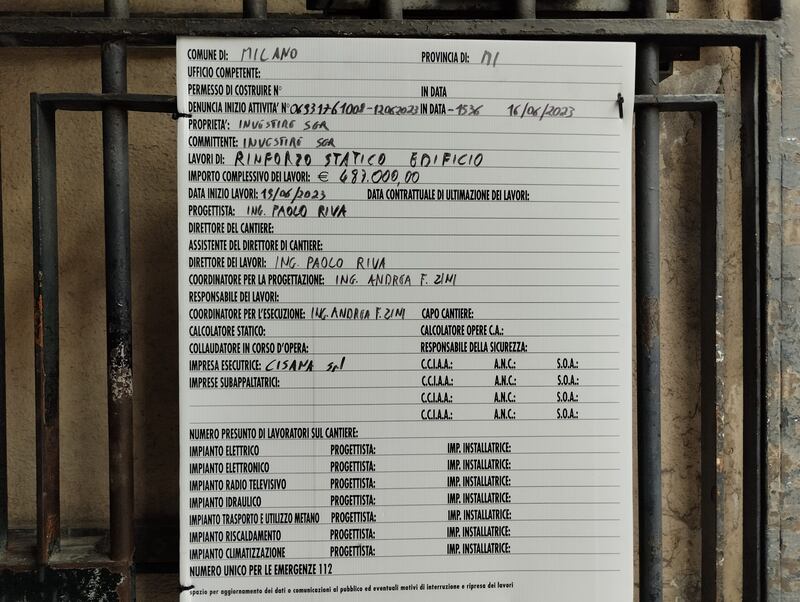 COMUNE DI: MILANO PROVINCIA DI: MI
UFFICIO COMPETENTE:
PERMESSO DI COSTRUIRE N° IN DATA
DENUNCIA INIZIO ATTIVITA' N° 06931761008-12062023 IN DATA -1536 16/06/2023
PROPRIETA': INVESTIRE SGR
COMMITTENTE: INVESTIRE SGR
LAVORI DI: RINFORZO STATICO EDIFICIO
IMPORTO COMPLESSIVO DEI LAVORI: € 487.000,00
DATA INIZIO LAVORI: 19/06/2023 DATA CONTRATTUALE DI ULTIMAZIONE DEI LAVORI:
PROGETTISTA: ING. PAOLO RIVA
DIRETTORE DEL CANTIERE:
ASSISTENTE DEL DIRETTORE DI CANTIERE:
DIRETTORE DEI LAVORI: ING. PAOLO RIVA
COORDINATORE PER LA PROGETTAZIONE: ING. ANDREA F. ZINI
RESPONSABILE DEI LAVORI:
COORDINATORE PER L'ESECUZIONE: ING. ANDREA F. ZINI CAPO CANTIERE:
CALCOLATORE STATICO: CALCOLATORE OPERE C.A.:
COLLAUDATORE IN CORSO D'OPERA: RESPONSABILE DELLA SICUREZZA:
IMPRESA ESECUTRICE: CISANA Srl C.C.I.A.A.: A.N.C.: S.O.A.:
IMPRESE SUBAPPALTATRICI: C.C.I.A.A.: A.N.C.: S.O.A.:
C.C.I.A.A.: A.N.C.: S.O.A.:
C.C.I.A.A.: A.N.C.: S.O.A.:
NUMERO PRESUNTO DI LAVORATORI SUL CANTIERE:
IMPIANTO ELETTRICO PROGETTISTA: IMP. INSTALLATRICE:
IMPIANTO ELETTRONICO PROGETTISTA: IMP. INSTALLATRICE:
IMPIANTO RADIO TELEVISIVO PROGETTISTA: IMP. INSTALLATRICE:
IMPIANTO IDRAULICO PROGETTISTA: IMP. INSTALLATRICE:
IMPIANTO TRASPORTO E UTILIZZO METANO PROGETTISTA: IMP. INSTALLATRICE:
IMPIANTO RISCALDAMENTO PROGETTISTA: IMP. INSTALLATRICE:
IMPIANTO CLIMATIZZAZIONE PROGETTISTA: IMP. INSTALLATRICE:
NUMERO UNICO PER LE EMERGENZE 112
spazio per aggiornamento dei dati o comunicazioni al pubblico ed eventuali motivi di interruzione e ripresa dei lavori